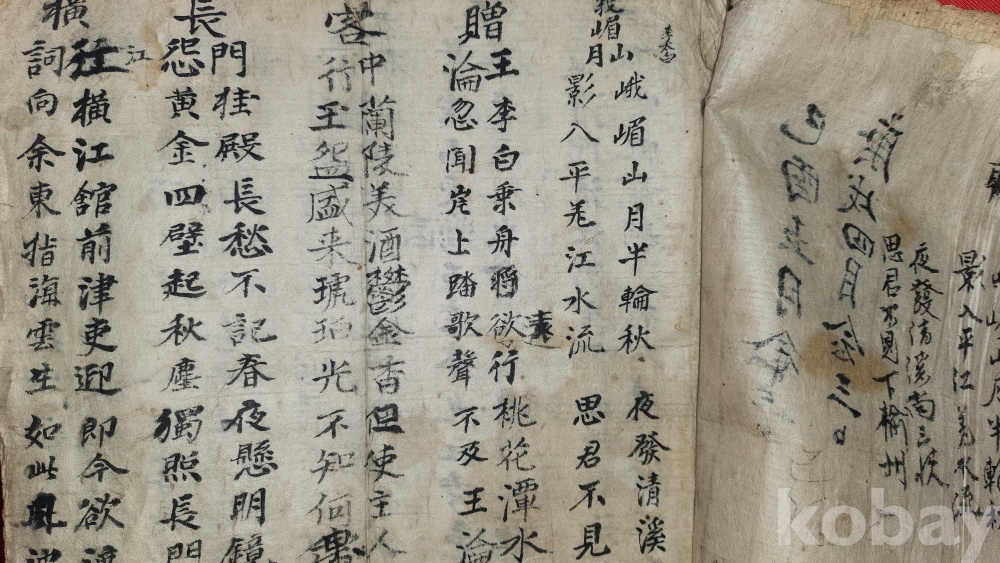 影入平江羌水流
夜發清溪南三峽
思君不見下楡州
李太白
峨嵋山月半輪秋 夜發清溪
嵋山月
影入平羌江水流 思君不見
贈王淪
李白乗舟將欲行 桃花潭水
忽聞岸上踏歌聲 不及王淪
客中行
蘭陵美酒鬱金香但使主人
玉盌盛来琥珀光不知何處
長門怨
桂殿長愁不記春夜懸明鏡
黄金四壁起秋塵獨照長門
橫江詞
橫江館前津吏迎即今欲渡
向余東指海雲生如此風波
kobay